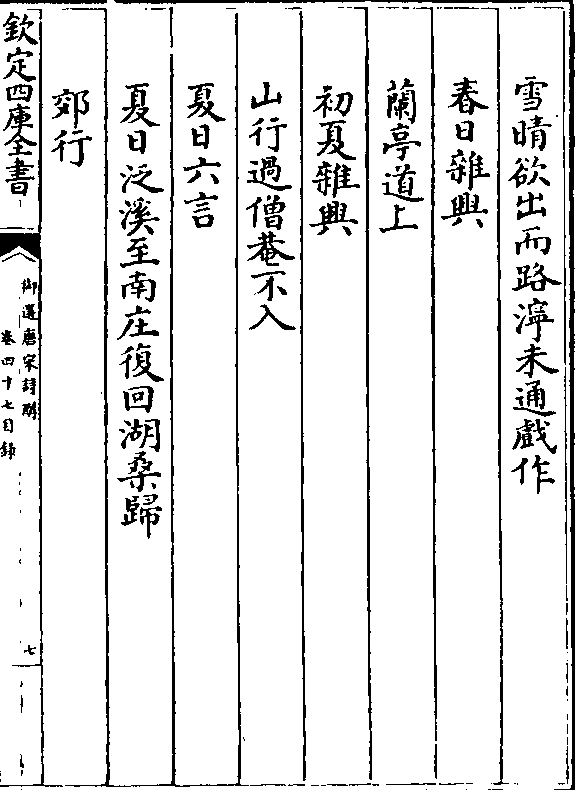 雪晴欲出而路濘未通戲作
春日雜興
蘭亭道上
初夏雜興
山行過僧菴不入
夏日六言
夏日泛溪至南庄復回湖桑歸
郊行
欽定四庫全書
御選唐宋詩醇
卷四十七目錄
七